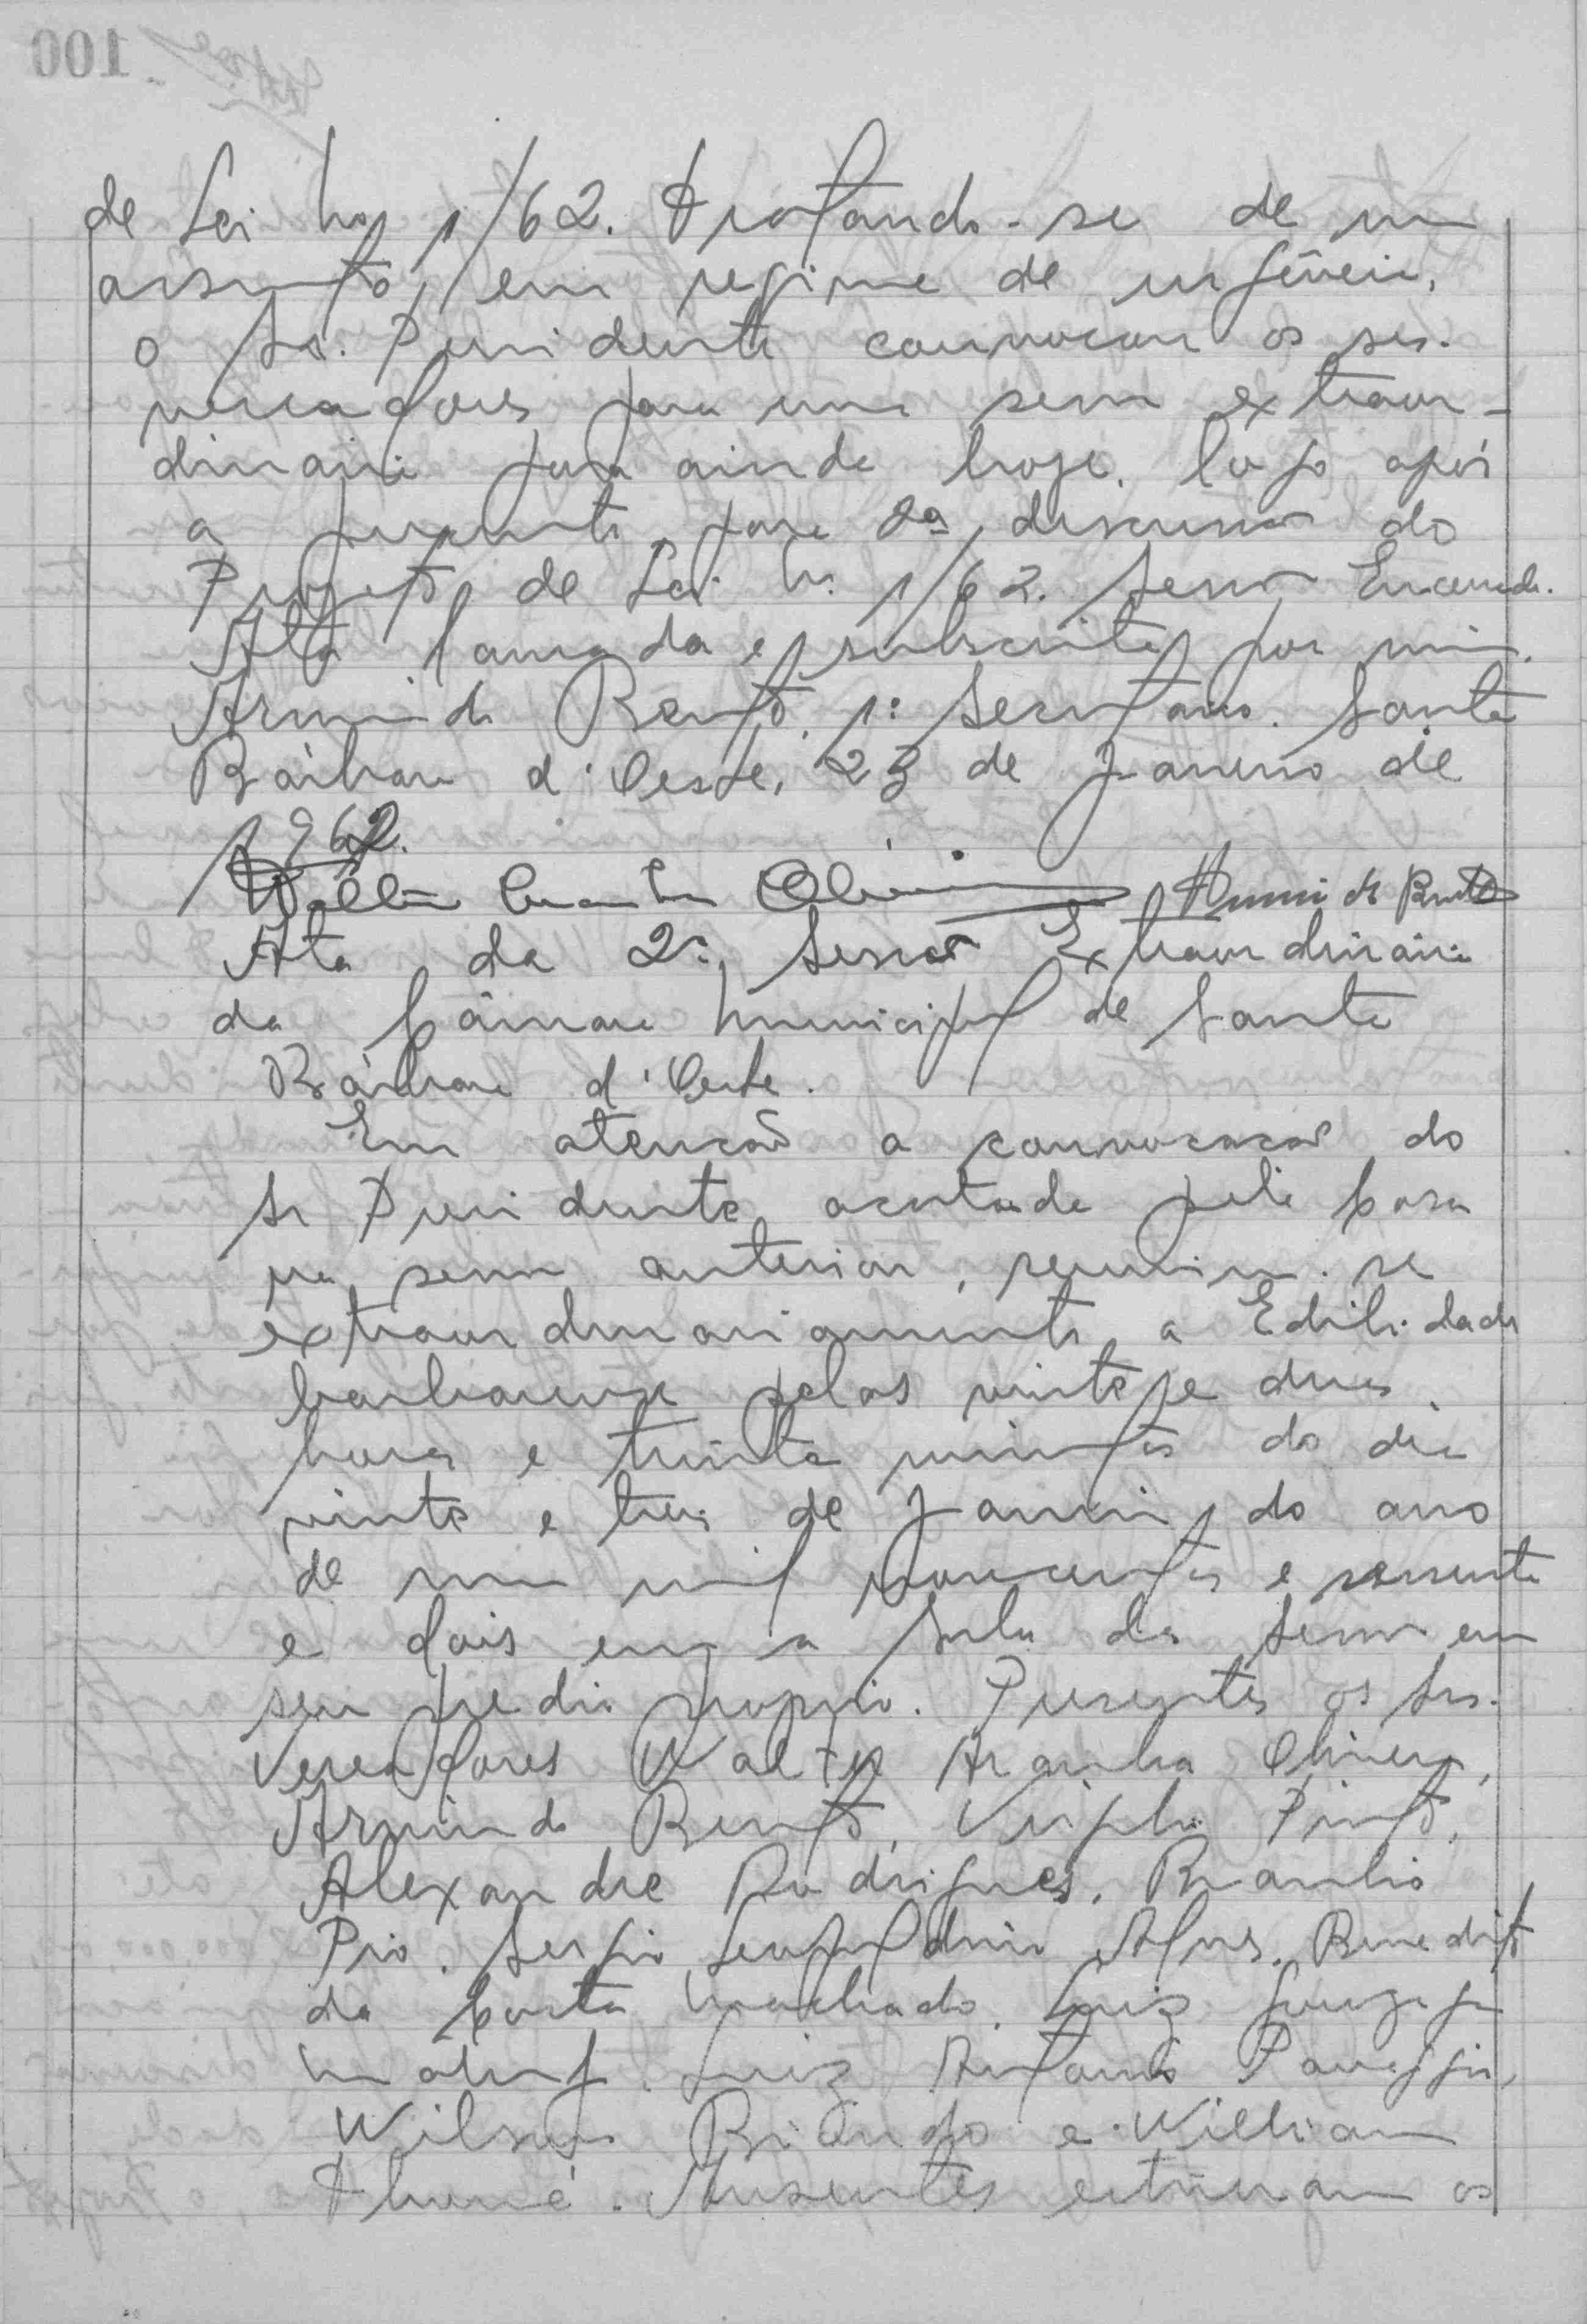 de Lei No 1/62. Tratando-se de um
assunto, em regime de urgência,
o Sr. Presidente convocou os srs.
vereadores para uma sessão extraor-
dinária para ainda hoje, logo após
a presente, para 2ª discussão do
Projeto de Lei No 1/62. Sessão Encerrada.
Ata lavrada e subscrita por mim,
Armindo Bento, 1º Secretário. Santa
Bárbara d'Oeste, 23 de Janeiro de
1962.
Armindo Bento
Ata da 2ª Sessão Extraordinária
da Câmara Municipal de Santa
Bárbara d'Oeste.
Em atenção a convocação do
Sr Presidente, acatada pela Casa
na sessão anterior, reuniu-se
extraordinariamente a Edilidade
barbarense pelas vinte e duas
horas e trinta minutos do dia
vinte e três de Janeiro do ano
de um mil novecentos e sessenta
e dois em a Sala da Sessão em
seu predio proprio. Presentes os Srs.
Vereadores Walter Aranha Oliveira,
Armindo Bento, Virgilio Pinto,
Alexandre Rodrigues, Braulio
Pio, Sergio Leopoldino Alves, Benedito
da Costa Machado, Luiz Gonzaga
Luiz Antonio Panaggio,
Wilson e William
Thomé. Ausentes estiveram os